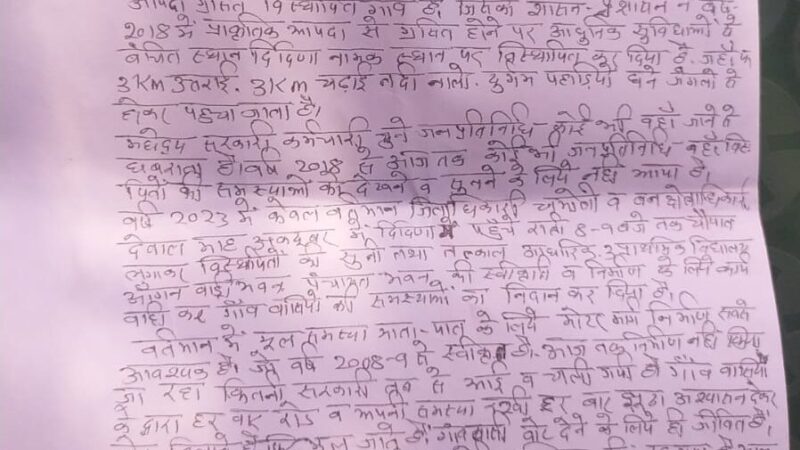 आपदा ग्रसित विस्थापित गांव है, जिसको शासन-प्रशासन ने वर्ष-
2018 में प्राकृतिक आपदा से ग्रसित होने पर आधुनिक सुविधाओं से
वंचित स्थान दिदिणा नामक स्थान पर विस्थापित कर दिया है. जहाँ कि
3Km उतराई. 3Km चढ़ाई नदी नालो. दुर्गम पहाड़ियों घने जंगलों से
होकर पहुंचा जाता है।
महोदय सरकारी कर्मचारी चुने जनप्रतिनिधि कोई भी वहाँ जाने से
घबराता है। वर्ष 2018 से आज तक कोई भी जनप्रतिनिधि
समस्याओं को देखने व पूछने के लिये नहीं आया है,
वर्ष 2023 में केवल वर्तमान जिलाधिकारी चमोली व वन क्षेत्राधिकारी
देवाल माह अक्टूबर में दिदिणा में पहुँचे रात्रो 8-9 बजे तक चौपाल
लगाकर विस्थापितों को सुना तथा तत्काल प्राथमिक विद्यालय
आँगन वाड़ी भवन पंचायत भवन की स्वीकृति व निर्माण के लिये कार्य
गाँव वासियों की समस्याओं का निदान कर दिया है।
वर्तमान में मूल समस्या माता-पात के लिये मोटर मार्ग निर्माण सबसे
आवश्यक है। जो वर्ष 2008-9 से स्वीकृत है. आज तक निर्माण नहीं किया
जा रहा कितनी सरकारी तब से आई व चली गयी है गाँव वासियों
के द्वारा हर बार रोड व अपनी समस्या रखी हर बार झूठा आश्वासन देकर
भूल जाते हैं। गांववासी वोट देने के लिये ही जीवित हैं,